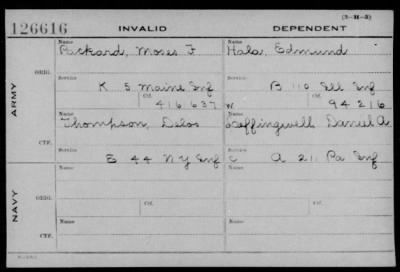 (3-H-3)
126616 INVALID DEPENDENT
Name Name
Packard, Moses F Hala, Edmund
ARMY
ORIG.
Service Service
K 5 Maine Inf B 110 Ill Inf
Ctf. Ctf.
416637 W 94216
Name Name
Thompson, Delos Leffingwell Daniel A
CTF.
Service Service
E 44 N Y Inf C A 211 Pa Inf
NAVY
Name Ctf. Name Ctf.
ORIG.
Name Name
CTF.